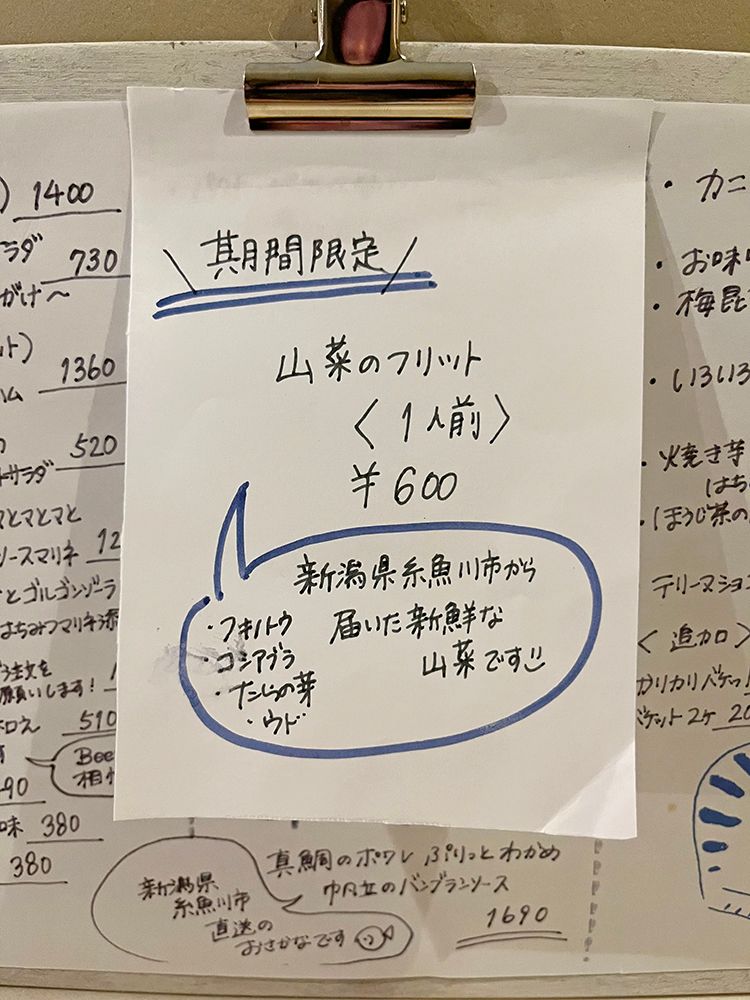 期間限定
山菜のフリット
〈1人前〉
¥600
新潟県糸魚川市から
届いた新鮮な
山菜です
・フキノトウ
・コシアブラ
・たらの芽
・ウド
1400
ラダ 730
がけ〜
ット)
ハム 1360
520
サラダ
マとマとマと
ソースマリネ 12
とゴルゴンゾーラ
はちみつマリネ添
注文を
願いします!
510
Bee
90
味 380
380
新潟県
糸魚川市
直送の
おさかなです
真鯛のポワレ ぷりっとわかめ
帆立のバンブランソース
1690
・カニ
・お味
・梅昆
・いろいろ
・焼き芋
はち
・ほうじ茶の
テリーヌショコ
〈追加〉
カリカリバゲッ
バゲット2ケ 20